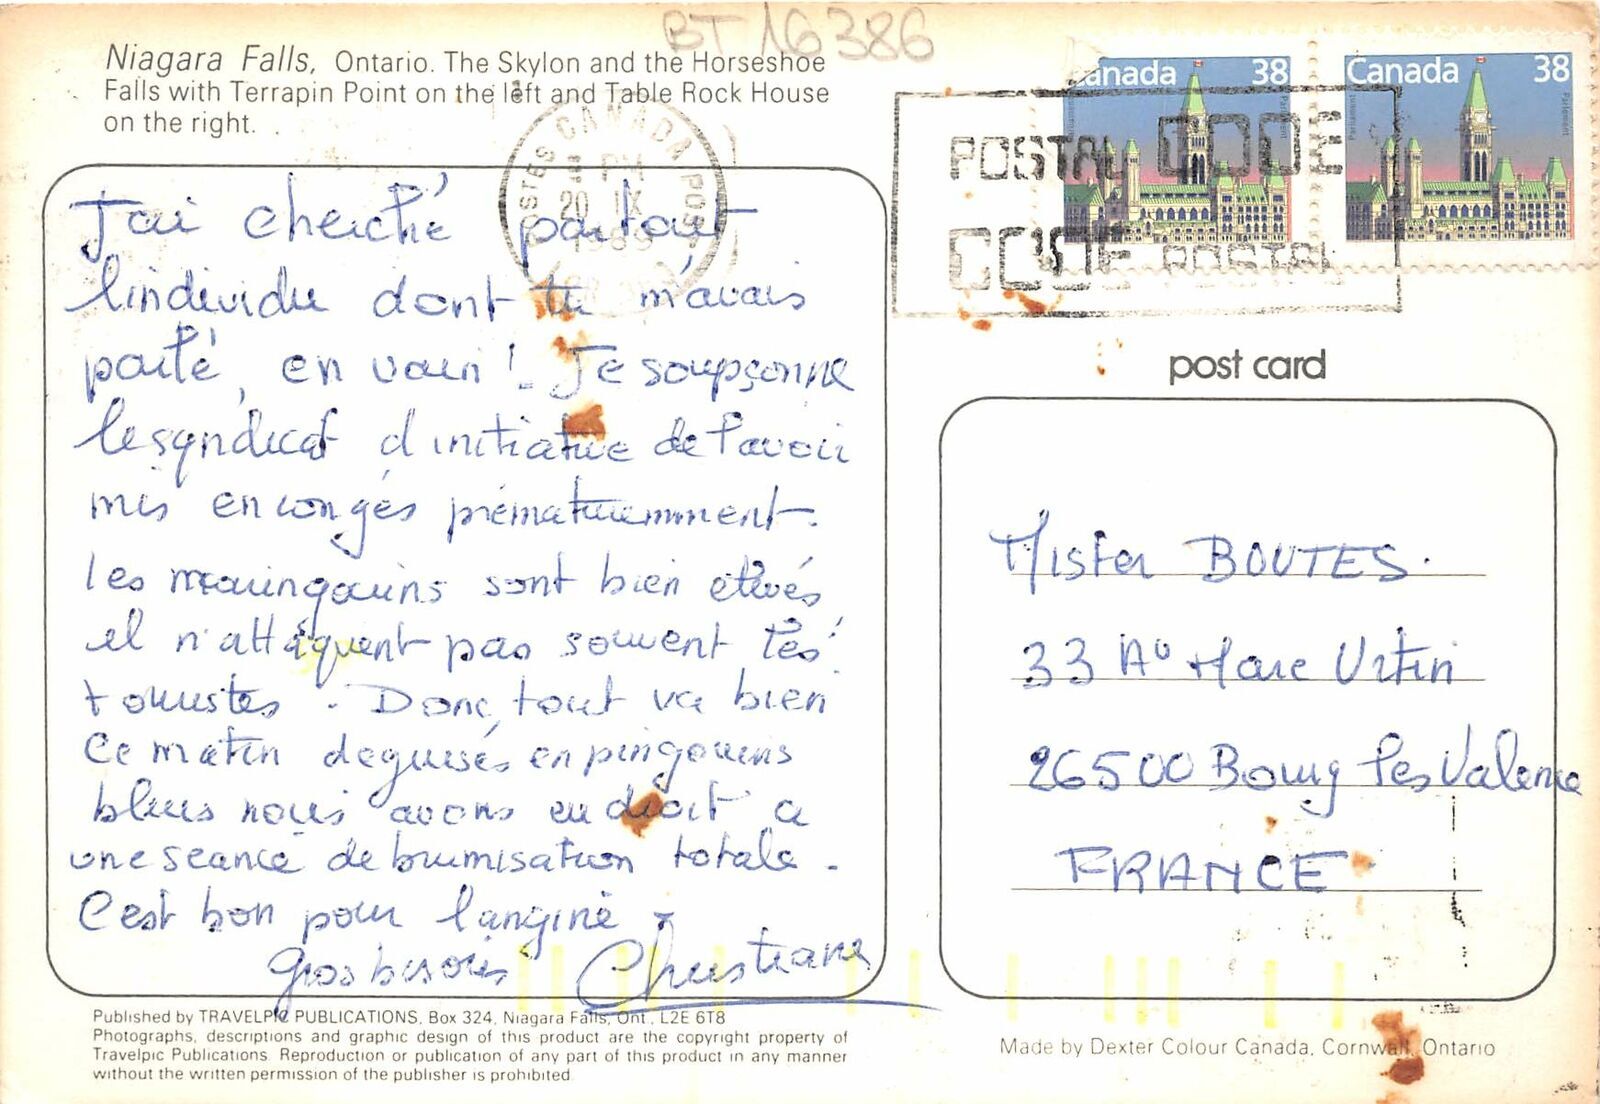 BT 16386
Niagara Falls, Ontario. The Skylon and the Horseshoe
Falls with Terrapin Point on the left and Table Rock House
on the right.
Canada 38
Canada 38
POSTES CANADA POST
PM
20 IX
POSTAL CODE
CODE POSTAL
J'ai cherché partout
l'individu dont tu m'avais
parlé, en vain! Je soupçonne
le syndicat d'initiative de l'avoir
mis en congés prématuremment.
Les maringouins sont bien elevés
il n'attaquent pas souvent les
touristes. Donc tout va bien
Ce matin deguisés en pingouins
bleus nous avons eu droit a
une seance de brumisation totale.
C'est bon pour l'angine.
Gros bisous Christiane
post card
Mister BOUTES.
33 Av Marc Urtin
26500 Bourg les Valence
FRANCE
Published by TRAVELPIC PUBLICATIONS, Box 324, Niagara Falls, Ont., L2E 6T8
Photographs, descriptions and graphic design of this product are the copyright property of
Travelpic Publications. Reproduction or publication of any part of this product in any manner
without the written permission of the publisher is prohibited.
Made by Dexter Colour Canada, Cornwall, Ontario